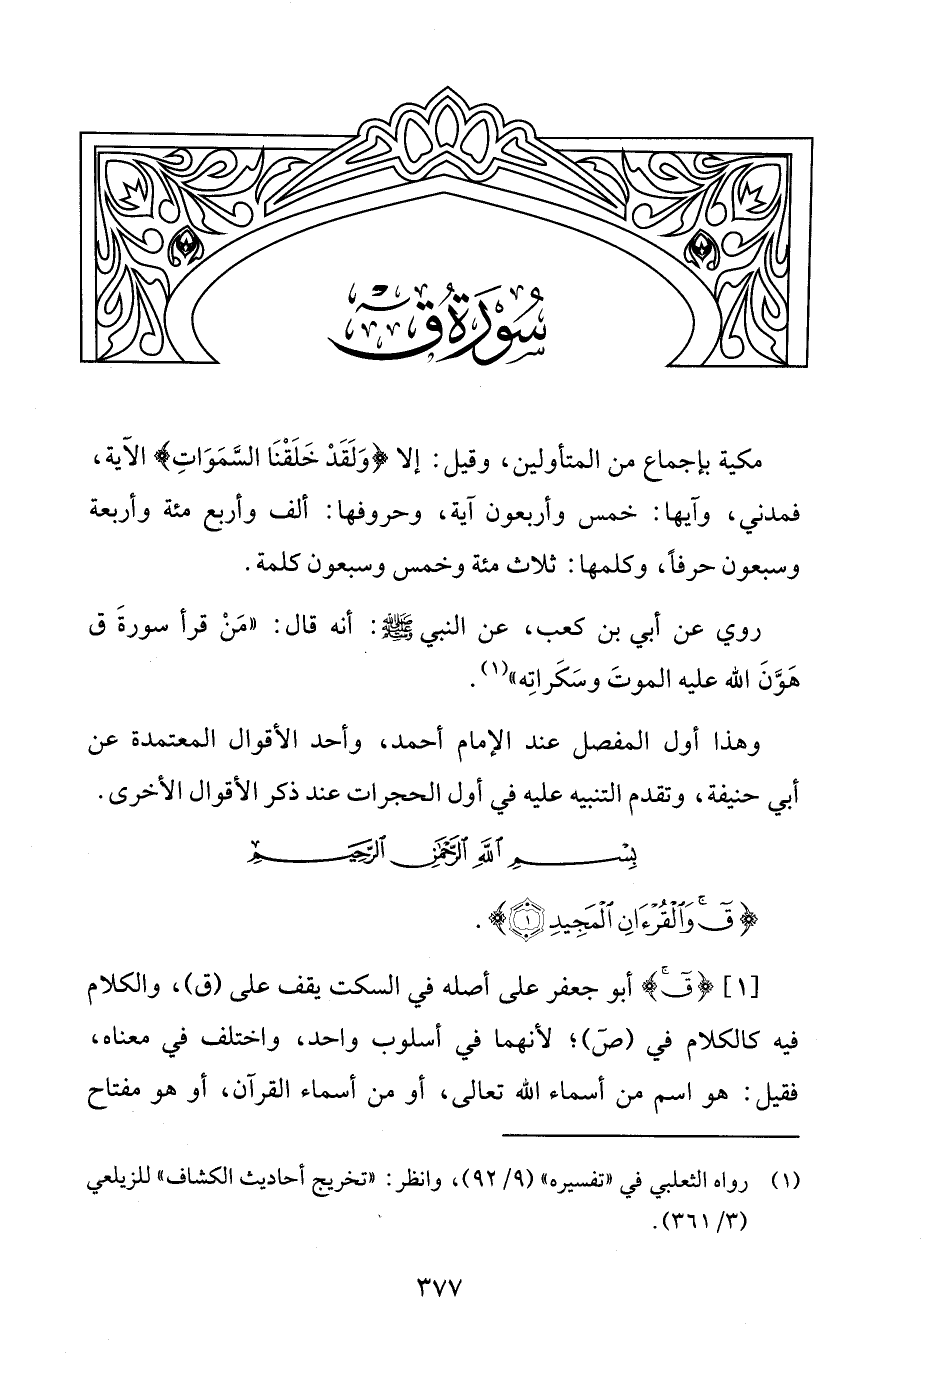 سُورَةُ ق
مكية بإجماع من المتأولين، وقيل: إلا ﴿وَلَقَدْ خَلَقْنَا السَّمَوَاتِ﴾ الآية،
فمدني، وآيها: خمس وأربعون آية، وحروفها: ألف وأربع مئة وأربعة
وسبعون حرفاً، وكلمها: ثلاث مئة وخمس وسبعون كلمة.
روي عن أبي بن كعب، عن النبي ﷺ: أنه قال: «مَنْ قرأ سورةَ ق
هَوَّنَ الله عليه الموتَ وسَكَراتِه»(١).
وهذا أول المفصل عند الإمام أحمد، وأحد الأقوال المعتمدة عن
أبي حنيفة، وتقدم التنبيه عليه في أول الحجرات عند ذكر الأقوال الأخرى.
بِسْمِ ٱللَّهِ ٱلرَّحْمَٰنِ ٱلرَّحِيمِ
﴿قٓۚ وَٱلْقُرْءَانِ ٱلْمَجِيدِ ١﴾.
[١] ﴿قٓۚ﴾ أبو جعفر على أصله في السكت يقف على (ق)، والكلام
فيه كالكلام في (صٓ)؛ لأنهما في أسلوب واحد، واختلف في معناه،
فقيل: هو اسم من أسماء الله تعالى، أو من أسماء القرآن، أو هو مفتاح
(١) رواه الثعلبي في «تفسيره» (٩/ ٩٢)، وانظر: «تخريج أحاديث الكشاف» للزيلعي
(٣/ ٣٦١).
٣٧٧